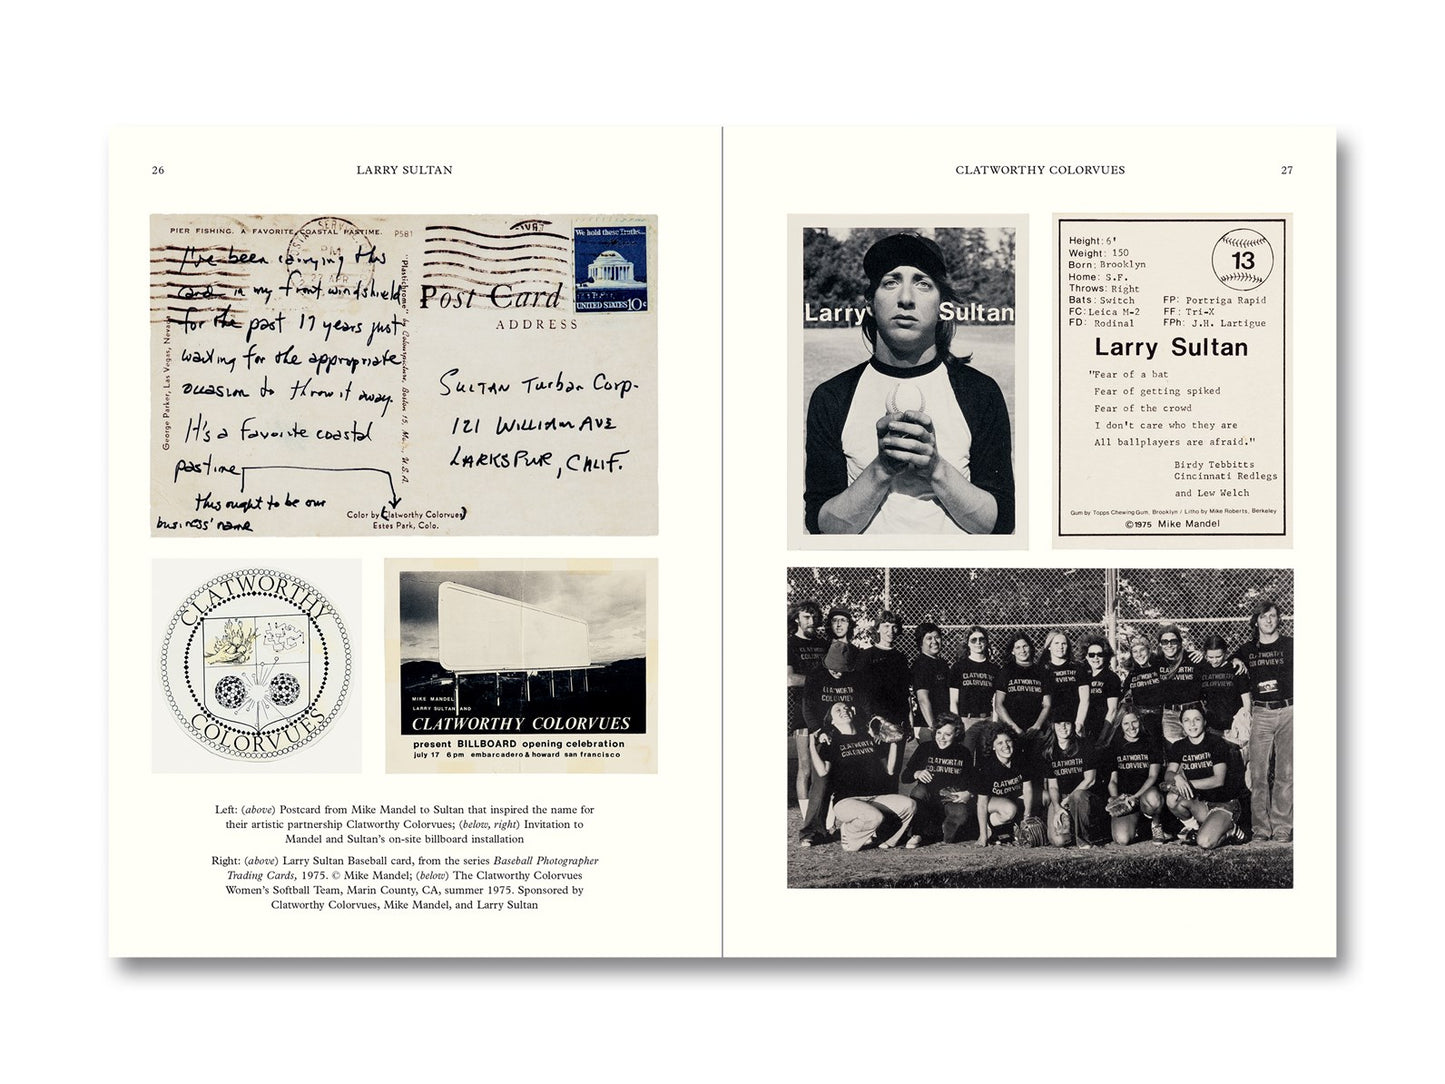 26
LARRY SULTAN
PIER FISHING. A FAVORITE COASTAL PASTIME.
P581
I've been carrying this
card in my front windshield
for the past 17 years just
waiting for the appropriate
occasion to throw it away.
It's a favorite coastal
pastime
this ought to be our
business' name
George Parker, Las Vegas, Nevada
"Plastichrome" by Colourpicture, Boston 15, Mass., U.S.A.
Color by (Clatworthy Colorvues)
Estes Park, Colo.
We hold these Truths...
UNITED STATES 10c
Post Card
ADDRESS
SULTAN Turban Corp.
121 WILLIAM AVE
LARKSPUR, CALIF.
CLATWORTHY
COLORVUES
MIKE MANDEL
LARRY SULTAN AND
CLATWORTHY COLORVUES
present BILLBOARD opening celebration
july 17 6pm embarcadero & howard san francisco
Left: (above) Postcard from Mike Mandel to Sultan that inspired the name for
their artistic partnership Clatworthy Colorvues; (below, right) Invitation to
Mandel and Sultan's on-site billboard installation
Right: (above) Larry Sultan Baseball card, from the series Baseball Photographer
Trading Cards, 1975. © Mike Mandel; (below) The Clatworthy Colorvues
Women's Softball Team, Marin County, CA, summer 1975. Sponsored by
Clatworthy Colorvues, Mike Mandel, and Larry Sultan
CLATWORTHY COLORVUES
27
Larry Sultan
Height: 6'
Weight: 150
Born: Brooklyn
Home: S.F.
Throws: Right
Bats: Switch
FC: Leica M-2
FD: Rodinal
13
FP: Portriga Rapid
FF: Tri-X
FPh: J.H. Lartigue
Larry Sultan
"Fear of a bat
Fear of getting spiked
Fear of the crowd
I don't care who they are
All ballplayers are afraid."
Birdy Tebbitts
Cincinnati Redlegs
and Lew Welch
Gum by Topps Chewing Gum, Brooklyn / Litho by Mike Roberts, Berkeley
©1975 Mike Mandel
CLATWORTHY
COLORVIEWS